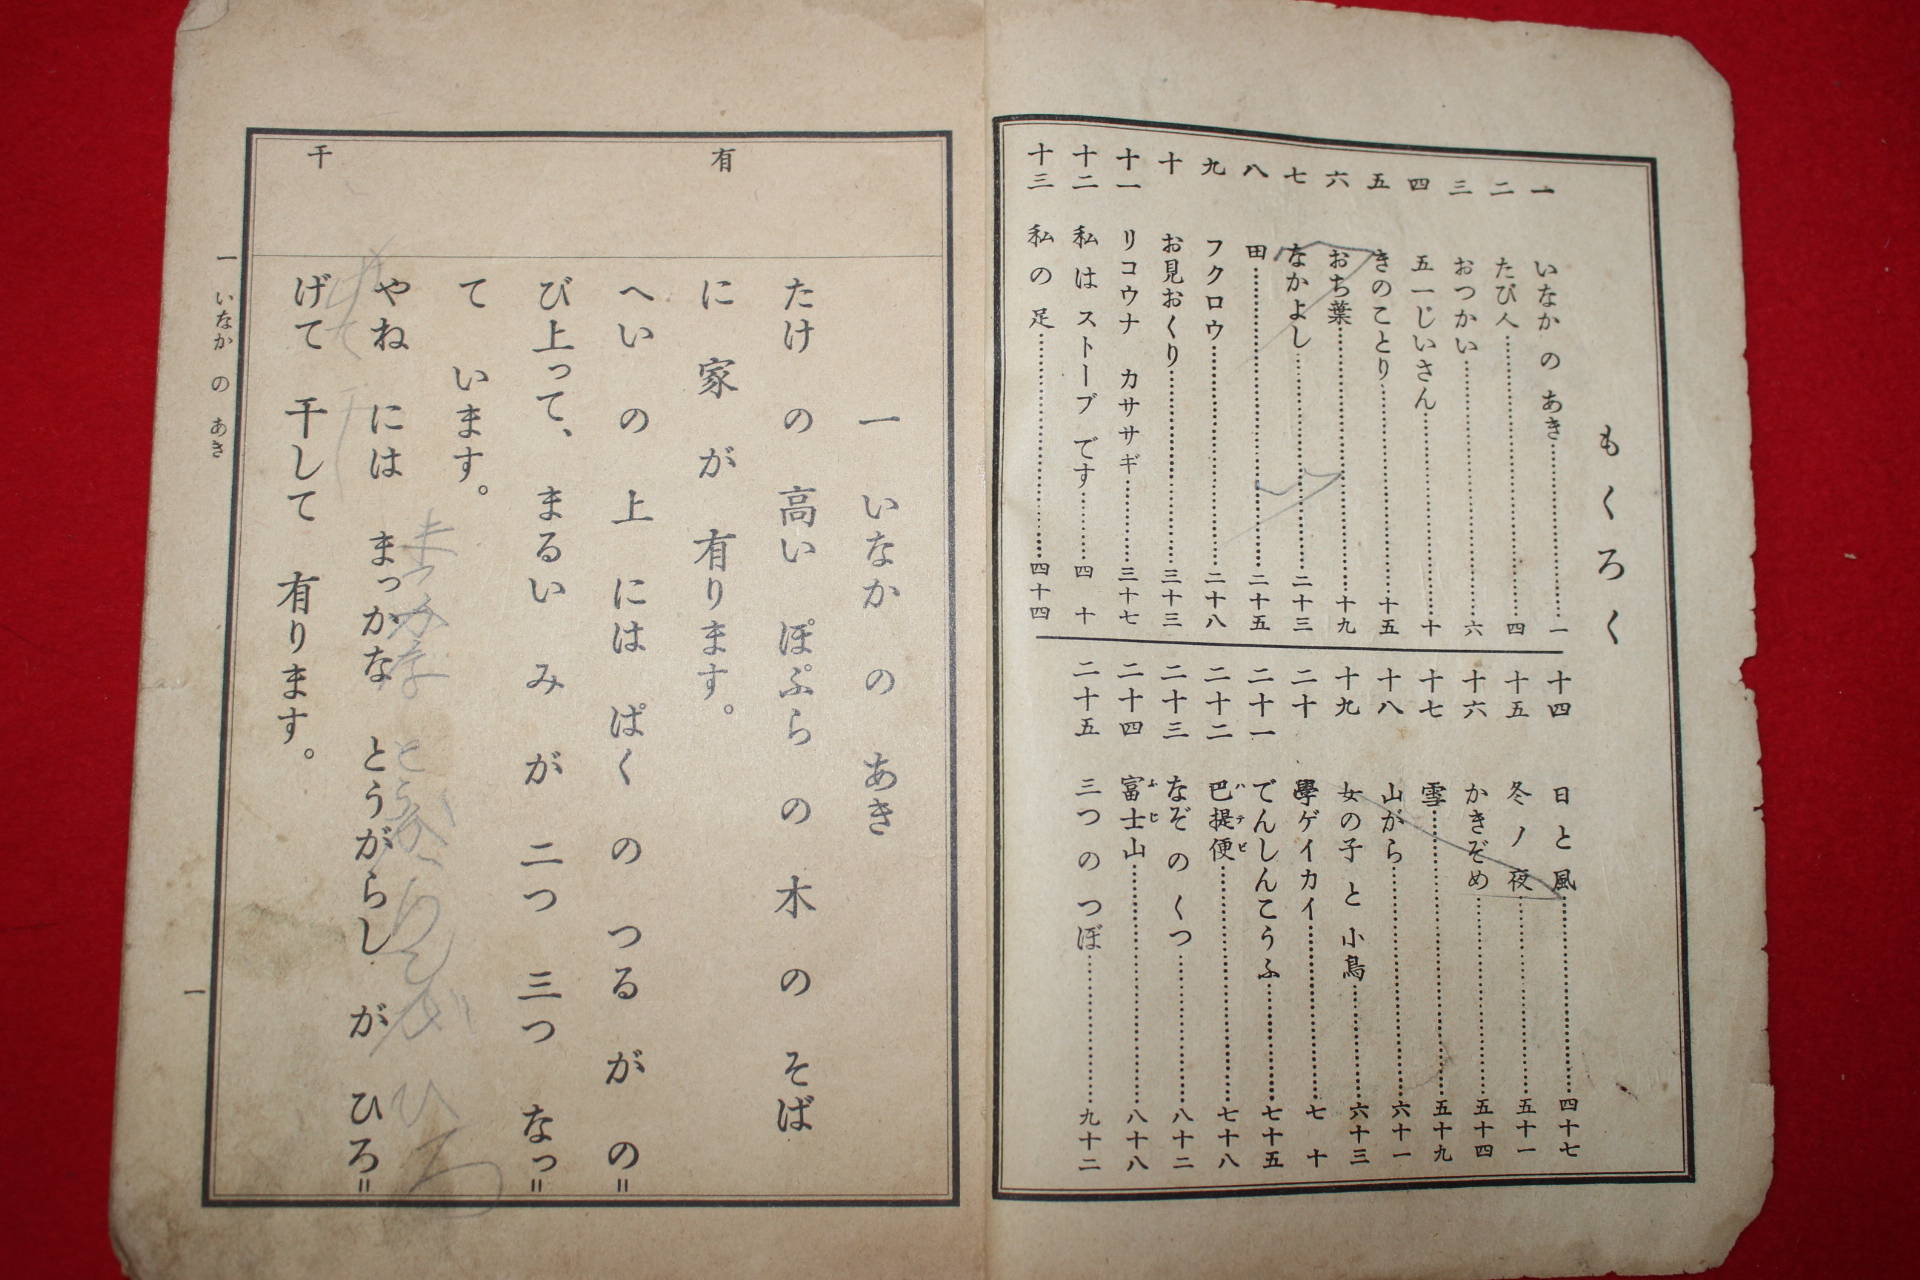 もくろく
一 いなか の あき 一
二 たび人 四
三 おつかい 六
四 五一じいさん 十
五 きのことり 十五
六 おち葉 十九
七 なかよし 二十三
八 田 二十五
九 フクロウ 二十八
十 お見おくり 三十三
十一 リコウナ カササギ 三十七
十二 私 は ストーブ です 四十
十三 私 の 足 四十四
十四 日 と 風 四十七
十五 冬 ノ 夜 五十一
十六 かきぞめ 五十四
十七 雪 五十九
十八 山がら 六十一
十九 女の子 と 小鳥 六十三
二十 學ゲイカイ 七十
二十一 でんしんこうふ 七十五
二十二 巴提便 ハテビ 七十八
二十三 なぞ の くつ 八十二
二十四 富士山 八十八
二十五 三つ の つぼ 九十二
有
干
一 いなか の あき
たけ の 高い ぽぷら の 木 の そば
に 家 が 有ります。
へい の 上 には ぱく の つる が の＝
び上って、 まるい み が 二つ 三つ なっ＝
て います。
やね には まっかな とうがらし が ひろ＝
げて 干して 有ります。
まっかな とうがらしが ひろ
げて 干
一 いなか の あき
一